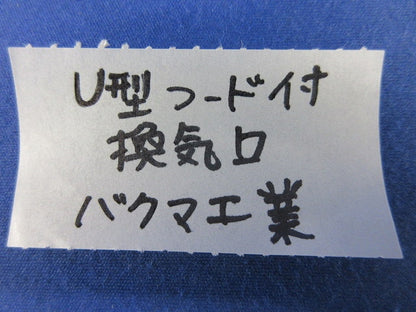 U型フード付
換気口
バクマ工業